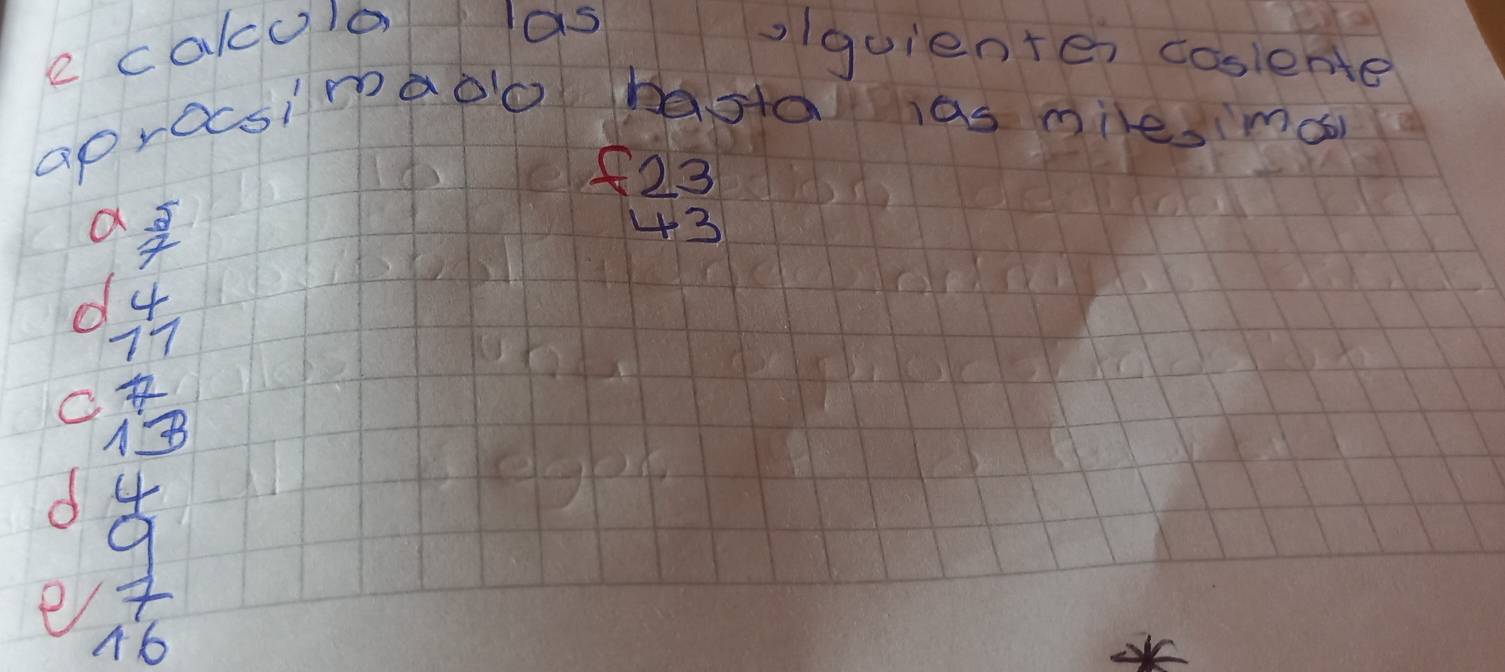 e calcula las siguientes cosiente
aprocsimado hasta las milesimas
a 5
7
f 23
43
d 4
11
c 7
13
d 4
9
e 7
16